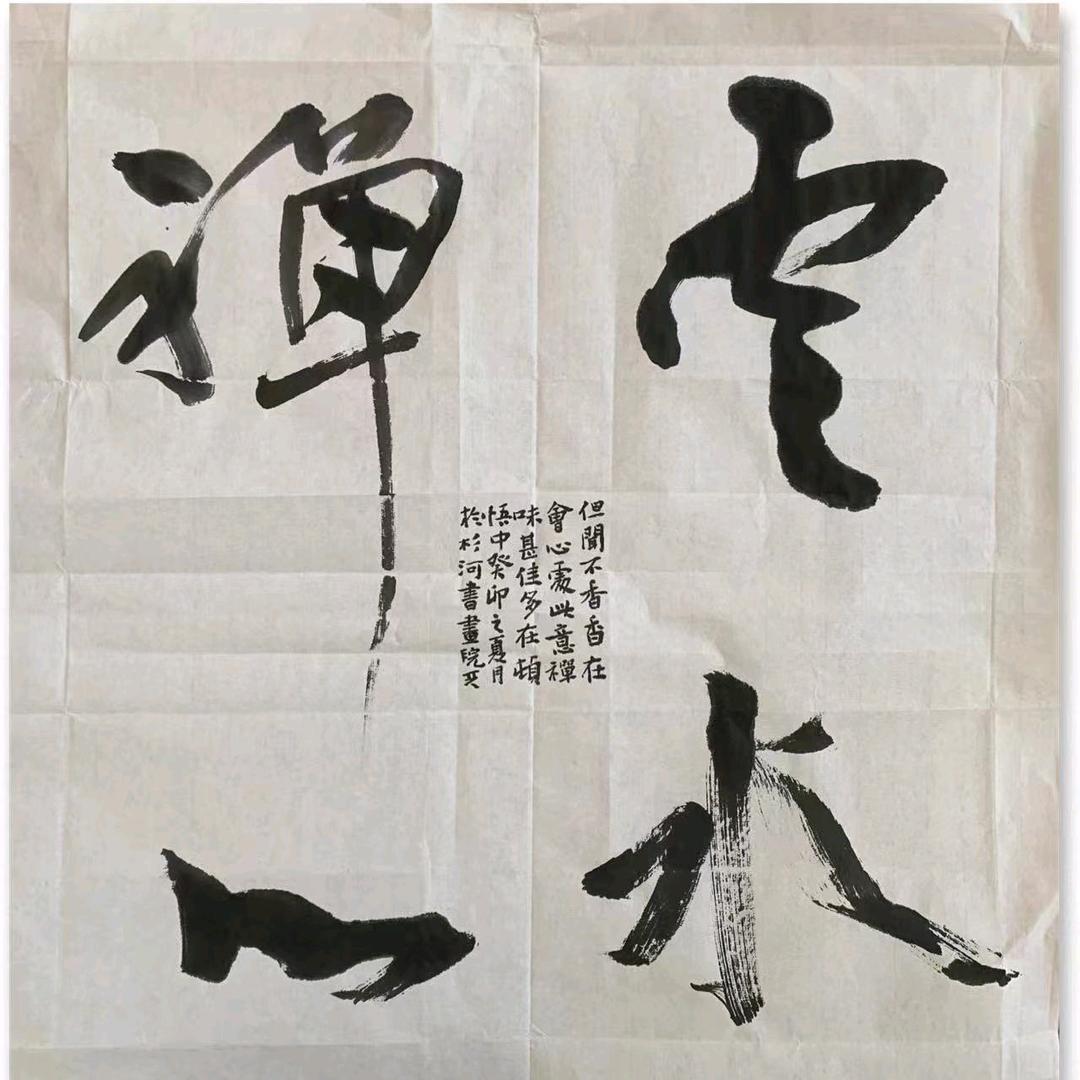 雲水
禪心
但聞不香香在
會心處此意禪
味甚佳多在頓
悟中癸卯之夏月
於杉河書畫院